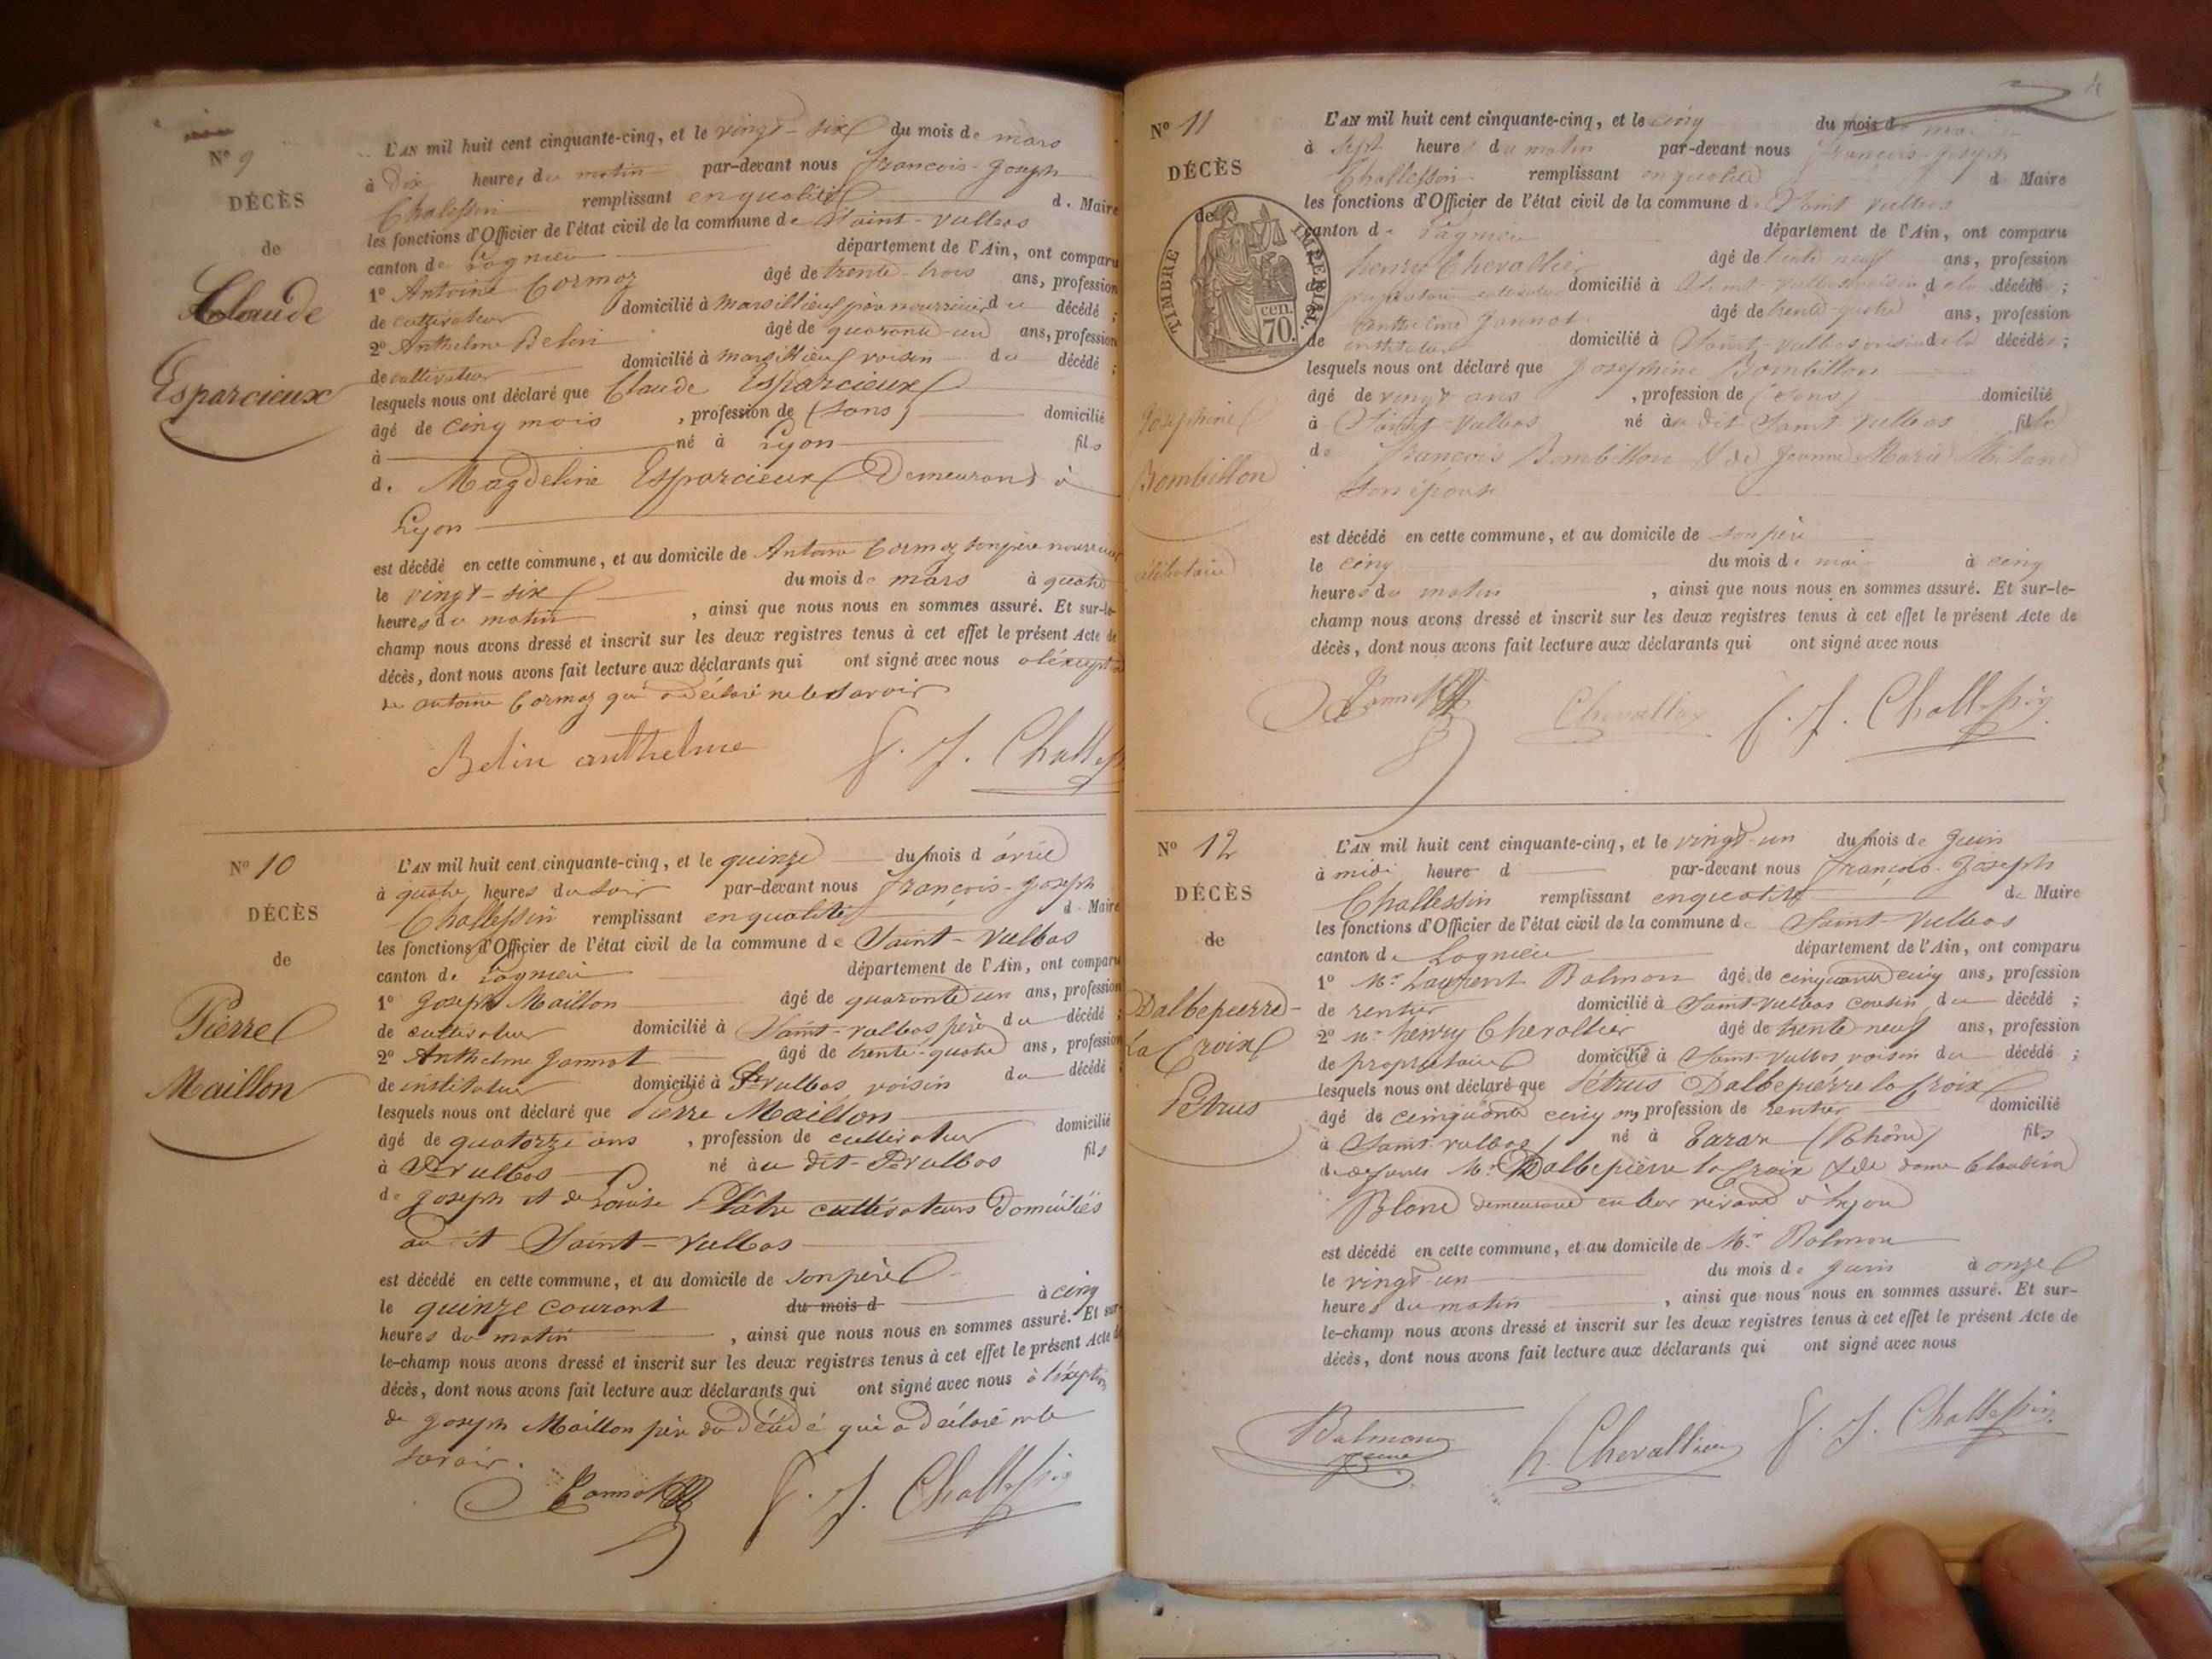 N° 9
DÉCÈS
de
Claude
Esparcieux
L'AN mil huit cent cinquante-cinq, et le vingt-six du mois de mars
à dix heures du matin par-devant nous françois-Joseph
Challessin remplissant en qualité de Maire
les fonctions d'Officier de l'état civil de la commune de Saint-Vulbas
canton de Lagnieu département de l'Ain, ont comparu
1° Antoine Cormoz âgé de trente-trois ans, profession
de cultivateur domicilié à Marsillieux père nourricier du décédé ;
2° Anthelme Belin âgé de quarante-un ans, profession
de cultivateur domicilié à Marsillieux voisin du décédé ;
lesquels nous ont déclaré que Claude Esparcieux
âgé de cinq mois , profession de (sans) domicilié
à né à Lyon fils
de Magdeline Esparcieux Demeurant à
Lyon
est décédé en cette commune, et au domicile de Antoine Cormoz son père nourricier
le vingt-six du mois de mars à quatre
heures du matin , ainsi que nous nous en sommes assuré. Et sur-le-
champ nous avons dressé et inscrit sur les deux registres tenus à cet effet le présent Acte de
décès, dont nous avons fait lecture aux déclarants qui ont signé avec nous à l'éxception
de antoine Cormoz qui a déclaré ne le savoir
Belin anthelme F. J. Challess
N° 10
DÉCÈS
de
Pierre
Maillon
L'AN mil huit cent cinquante-cinq, et le quinze du mois d avril
à quatre heures du soir par-devant nous françois-Joseph
Challessin remplissant en qualité d Maire
les fonctions d'Officier de l'état civil de la commune de Saint-Vulbas
canton de Lagnieu département de l'Ain, ont comparu
1° Joseph Maillon âgé de quarante un ans, profession
de cultivateur domicilié à Saint-vulbas père du décédé ;
2° Anthelme Jannot âgé de trente-quatre ans, profession
de instituteur domicilié à St vulbas voisin du décédé ;
lesquels nous ont déclaré que Pierre Maillon
âgé de quatorze ans , profession de cultivateur domicilié
à St vulbas né àu dit St vulbas fils
de Joseph et de Louise Plâtre cultivateurs Domiciliés
au dit Saint-Vulbas
est décédé en cette commune, et au domicile de son père
le quinze courant du mois d à cinq
heures du matin , ainsi que nous nous en sommes assuré. Et sur-
le-champ nous avons dressé et inscrit sur les deux registres tenus à cet effet le présent Acte de
décès, dont nous avons fait lecture aux déclarants qui ont signé avec nous à l'éxption
de Joseph Maillon père du décédé qui a déclaré ne le
savoir.
Jannot F. J. Challessin
N° 11
DÉCÈS
de
TIMBRE IMPERIAL
70 cen.
Josephine
Bombillon
célibataire
L'AN mil huit cent cinquante-cinq, et le cinq du mois de mai
à sept heures du matin par-devant nous françois-Joseph
Challessin remplissant en qualité d Maire
les fonctions d'Officier de l'état civil de la commune de Saint Vulbas
canton de Lagnieu département de l'Ain, ont comparu
henry Chevallier âgé de trente neuf ans, profession
propriétaire domicilié à Saint-Vulbas voisin de la décédée ;
Anthelme Jannot âgé de trente-quatre ans, profession
de instituteur domicilié à Saint-Vulbas voisin de la décédée ;
lesquels nous ont déclaré que Josephine Bombillon
âgé de vingt ans , profession de (sans) domicilié
à Saint-Vulbas né àu dit Saint Vulbas fille
de françois Bombillon & de Jeanne Marie Miland
son épouse
est décédé en cette commune, et au domicile de son père
le cinq du mois de mai à cinq
heures du matin , ainsi que nous nous en sommes assuré. Et sur-le-
champ nous avons dressé et inscrit sur les deux registres tenus à cet effet le présent Acte de
décès, dont nous avons fait lecture aux déclarants qui ont signé avec nous
Jannot Chevallier F. J. Challessin
N° 12
DÉCÈS
de
Dalbepierre-
La Croix
Pétrus
L'AN mil huit cent cinquante-cinq, et le vingt-un du mois de Juin
à midi heure d par-devant nous françois-Joseph
Challessin remplissant en qualité de Maire
les fonctions d'Officier de l'état civil de la commune de Saint-Vulbas
canton de Lagnieu département de l'Ain, ont comparu
1° Mr Laurent Balmon âgé de cinquante cinq ans, profession
de rentier domicilié à Saint-Vulbas cousin du décédé ;
2° Mr henry Chevallier âgé de trente neuf ans, profession
de propriétaire domicilié à Saint-Vulbas voisin du décédé ;
lesquels nous ont déclaré que Pétrus Dalbepierre la Croix
âgé de cinquante cinq ans profession de rentier domicilié
à Saint-vulbas né à Tarare (Rhône) fils
de defunts Mr Dalbepierre la Croix & de dame Claudine
Blanc demeurant en leur vivant à Lyon
est décédé en cette commune, et au domicile de Mr Balmon
le vingt-un du mois de Juin à onze
heures du matin , ainsi que nous nous en sommes assuré. Et sur-
le-champ nous avons dressé et inscrit sur les deux registres tenus à cet effet le présent Acte de
décès, dont nous avons fait lecture aux déclarants qui ont signé avec nous
Balmon h. Chevallier F. J. Challessin